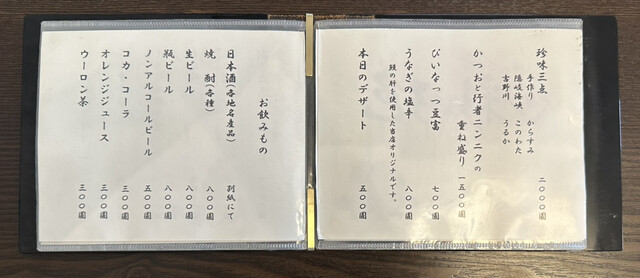 珍味三点 二〇〇〇圓
手作り からすみ
隠岐海峡 このわた
吉野川 うるか
かつおと行者ニンニクの
重ね盛り 一五〇〇圓
ぴいなっつ豆富 七〇〇圓
うなぎの塩辛 八〇〇圓
鰻の肝を使用した当店オリジナルです。
本日のデザート 五〇〇圓
お飲みもの
日本酒(各地名産品) 別紙にて
焼酎(各種) 八〇〇圓
生ビール 八〇〇圓
瓶ビール 八〇〇圓
ノンアルコールビール 五〇〇圓
コカ・コーラ 三〇〇圓
オレンジジュース 三〇〇圓
ウーロン茶 三〇〇圓